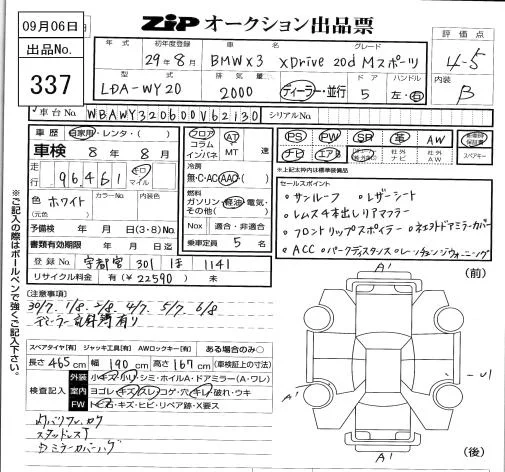 09月06日
ZIP オークション出品票
出品No.
337
年式 初年度登録 車名 グレード
29年8月 BMW X3 XDrive 20d Mスポーツ
型式 排気量 ドア ハンドル
LDA-WY20 2000 ディーラー・並行 5 左・右
評価点
4-5
内装
B
車台No. WBAWY320600V62130 シリアルNo.
車歴 自家用・レンタ・( )
車検 8年8月
走行 96,461 キロ マイル
色 ホワイト カラーNo. 内装色
(元色)
予備検 年 月 日(3・8)No.
書類有効期限 年 月 日迄
フロア コラム インパネ AT MT 速
冷房
無・C・AC・AAC
燃料
ガソリン・軽油・電気・その他( )
Nox 適合・非適合
乗車定員 5 名
登録No. 宇都宮 301 ほ 1141
リサイクル料金 有(¥22590) 未
PS PW SR 革 AW
ナビ エアB 社外ナビ 社外AW
スペアキー
※上記太枠内は標準装備品
セールスポイント
・サンルーフ ・レザーシート
・レムス4本出しリアマフラー
・フロントリップスポイラー
・ACC ・パークディスタンス ・レーンチェンジウォーニング
※ご記入の際はボールペンで強くご記入下さい。
[注意事項]
30/7. 1/8. 2/8. 4/7. 5/7. 6/8
ディーラー記録簿有り
スペアタイヤ[有] ジャッキ工具[有] AWロックキー[有] ある場合のみ○
長さ 465cm 幅 190cm 高さ 167cm (車検証上の寸法)
検査記入
外装 小キズ・小凹・シミ・ホイルA・ドアミラー(A・ワレ)
室内 ヨゴレ・キズ・スレ・コゲ・穴・キレ・破れ・ウキ
FW ト石・キズ・ヒビ・リペア跡・X要ス
スタッドレス
ミラーカバー
(前)
A1
A1
A1
U1
(後)